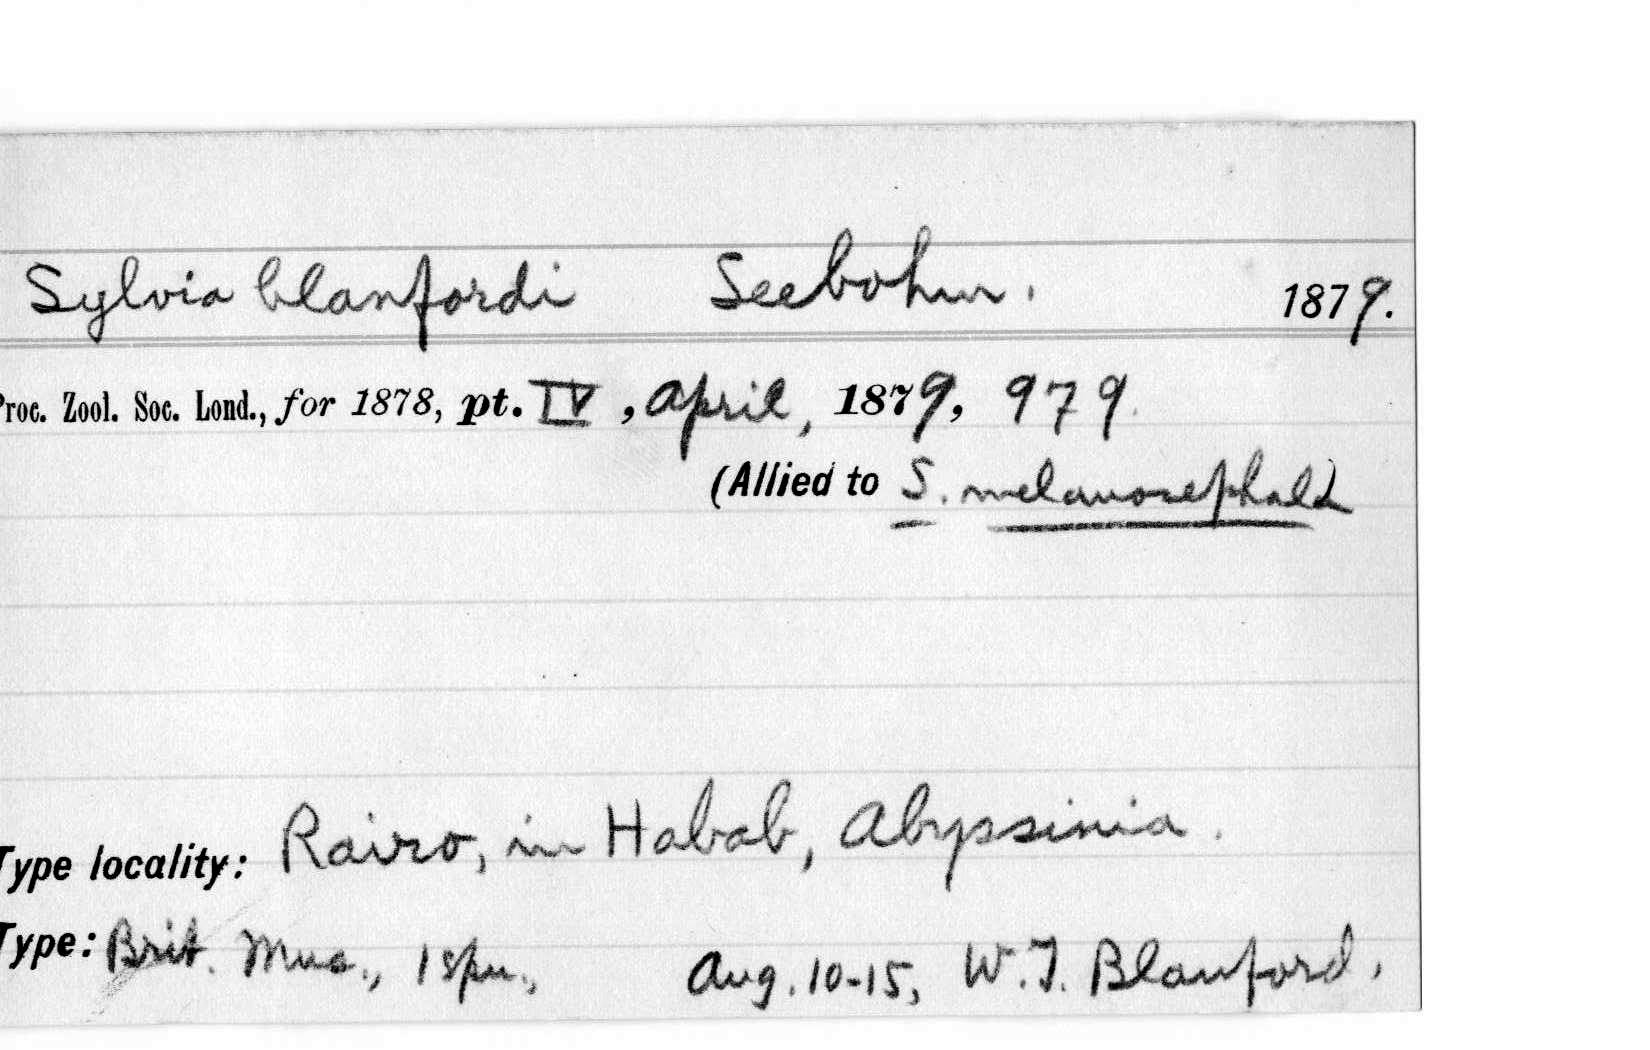 Sylvia blanfordi Seebohm. 1879.
Proc. Zool. Soc. Lond., for 1878, pt. IV, April, 1879, 979.
(Allied to S. melanocephala
Type locality: Rairo, in Habab, Abyssinia.
Type: Brit. Mus., 1 spm., Aug. 10-15, W.T. Blanford.